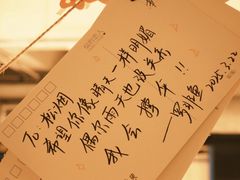 To：松烟
希望你像晴天一样明媚
偶尔雨天也没关系
我会撑伞!!
2025.3.22